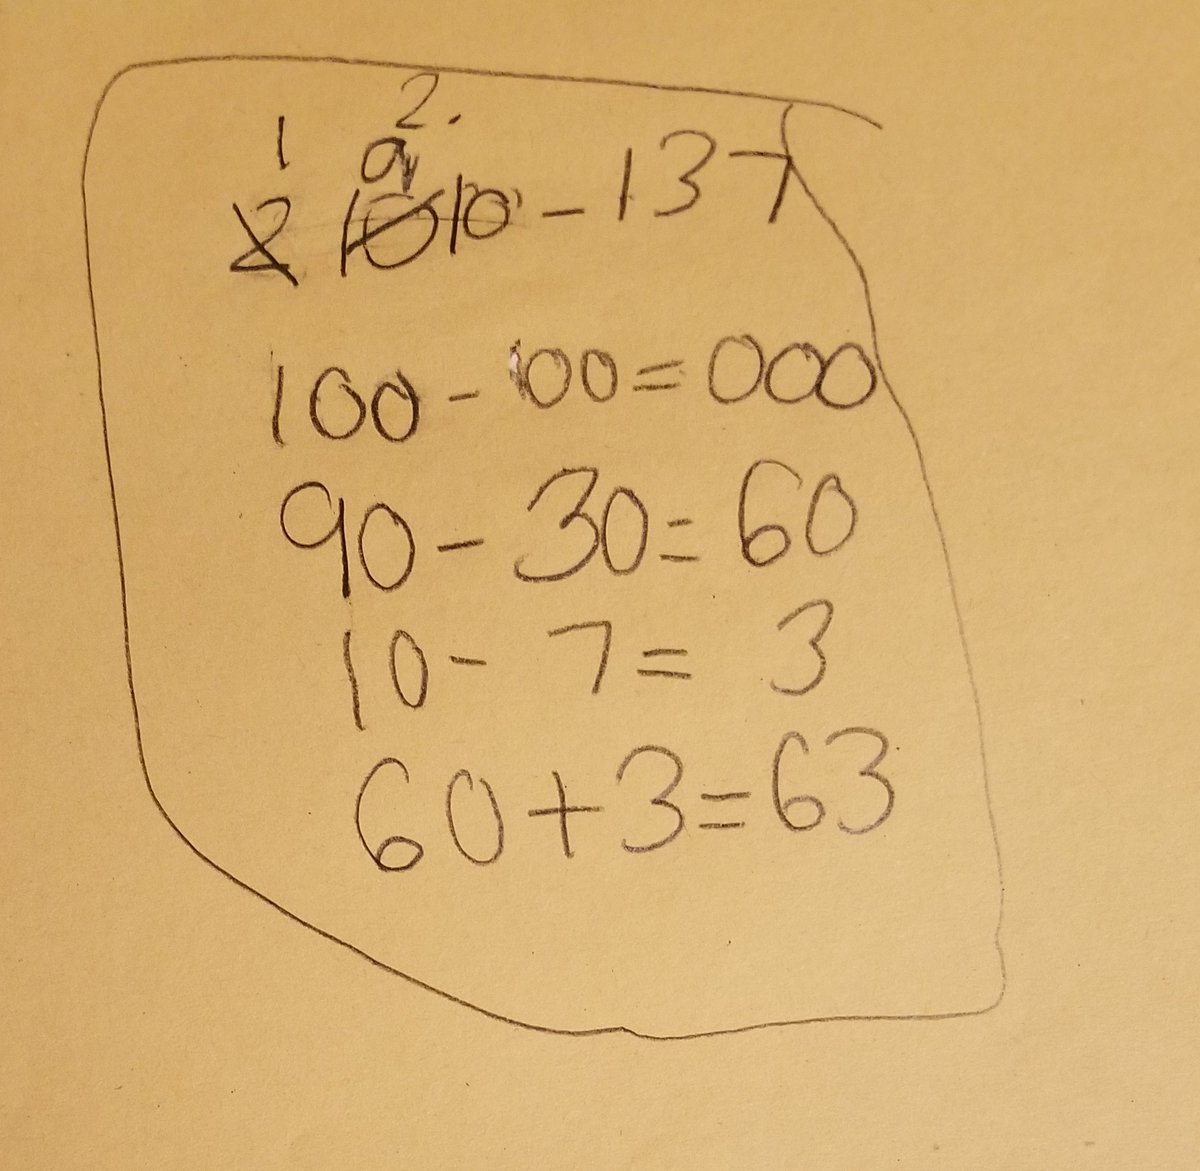 2.
1 9
2 10 10 - 137
100 - 100 = 000
90 - 30 = 60
10 - 7 = 3
60 + 3 = 63